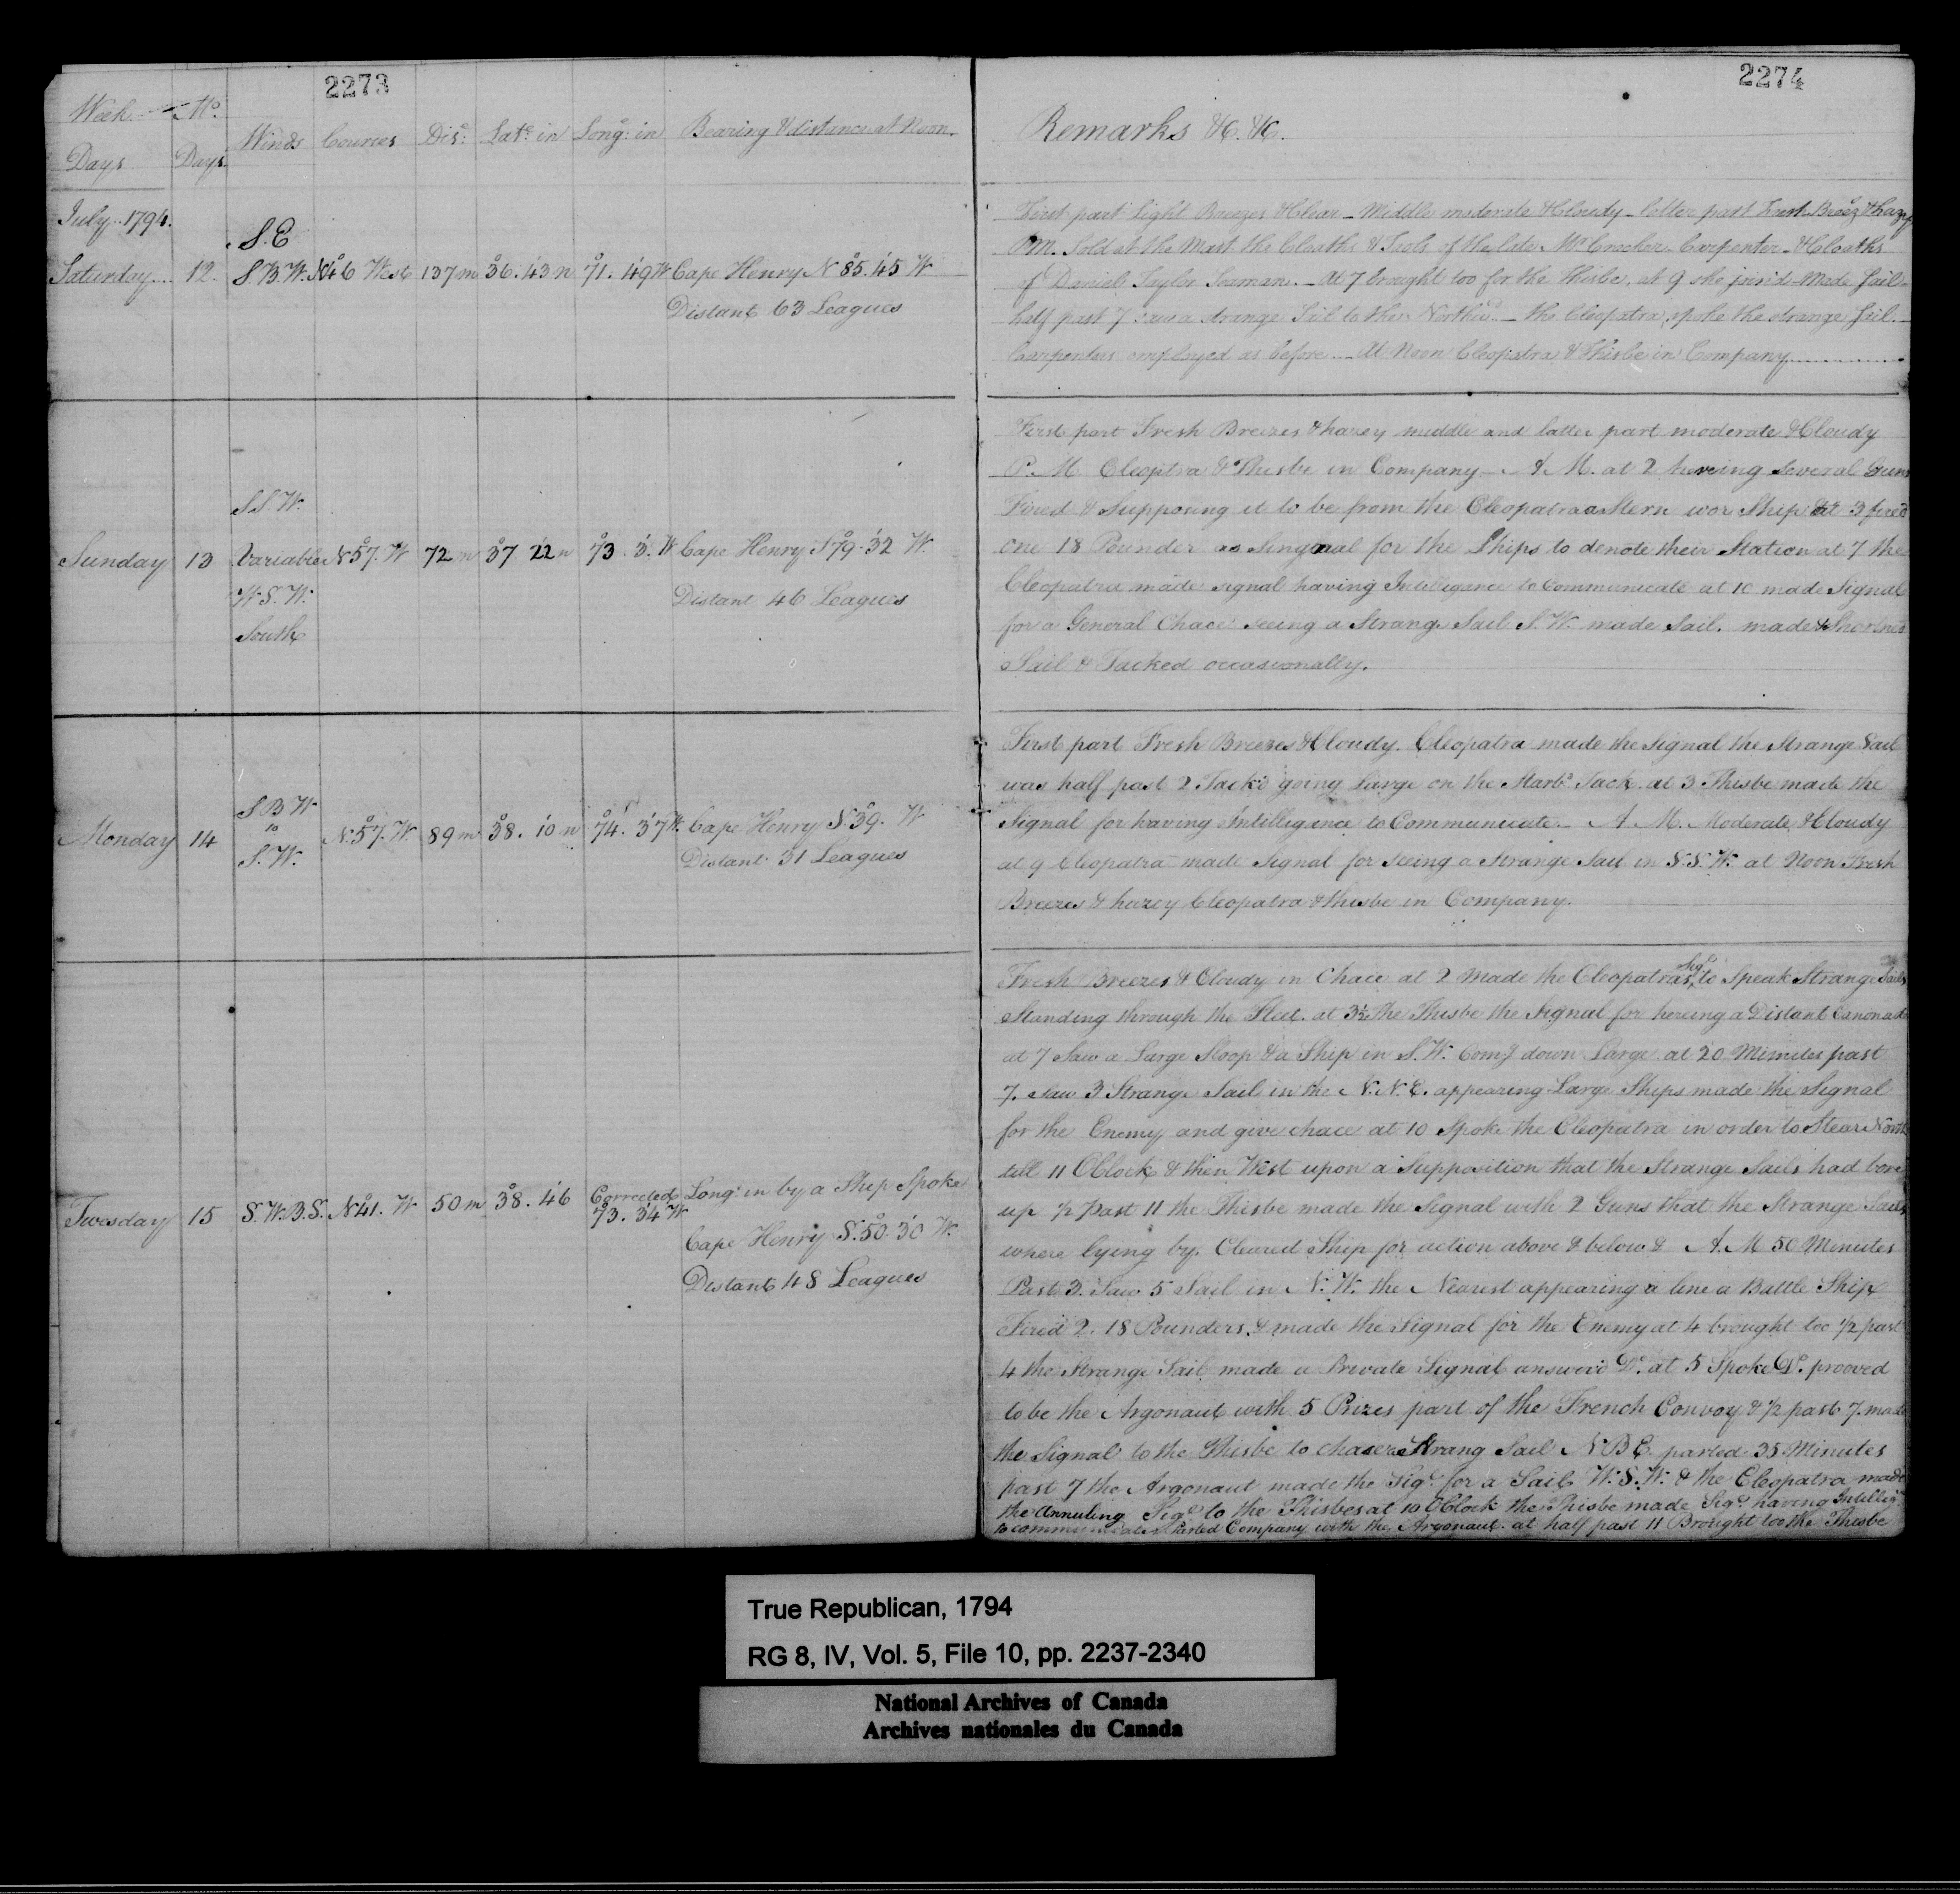 2273
Week Days
Mo. Days
Winds
Courses
Dise:
Late: in
Longe: in
Bearing & distance at Noon
July 1794.
Saturday 12.
S.E
S B W.
N46° West
137 m
36°.43' n
71°.49' W
Cape Henry N 85°.45' W
Distant 63 Leagues
Sunday 13
S S. W.
Variable
W. S. W.
South
N 57°. W
72 m
37° 22' n
73°. 3'. W
Cape Henry S 79°. 32 W.
Distant 46 Leagues
Monday 14
S B W
to
S. W.
N. 57°. W.
89 m
38°. 10' n
74°. 37' W.
Cape Henry S 39°. W
Distant 31 Leagues
Tuesday 15
S. W. B. S.
N 41°. W
50 m
38°. 46'
Corrected
73°. 34' W
Long: in by a Ship Spoke
Cape Henry S. 50°. 30' W.
Distant 48 Leagues
2274
Remarks &c. &c.
First part Light Breezes & Clear – Middle moderate & Cloudy – latter part Fresh Breez & hazey
P.M. Sold at the Mast the Cloaths & Tools of the late Mr Crocker Carpenter – & Cloaths
of Daniel Taylor Seaman. – At 7 brought too for the Thisbe, at 9 she join'd – Made Sail –
half past 7 saw a strange Sail to the Northwd. – the Cleopatra spoke the strange Sail. –
Carpenters employed as before – At Noon Cleopatra & Thisbe in Company
First part Fresh Breezes & hazey middle and latter part moderate & Cloudy
P. M. Cleoptra & Thisbe in Company – A M. at 2 hereing several Guns
Fired & Supposing it to be from the Cleopatra a Stern wor Ship at 3 fired
one 18 Pounder as Singnal for the Ships to denote their Station at 7 the
Cleopatra made signal having Intelligance to Communicate at 10 made Signal
for a General Chace seeing a Strange Sail S. W. made Sail. made & Shortned
Sail & Tacked occasionally.
First part Fresh Breezes & Cloudy. Cleopatra made the Signal the Strange Sail
was half past 2 Tack'd going Large on the Starbd Tack. at 3 Thisbe made the
Signal for having Intelligance to Communicate – A. M. Moderate & Cloudy
at 9 Cleopatra made Signal for seeing a Strange Sail in S. S. W. at Noon Fresh
Breezes & hazey Cleopatra & thisbe in Company.
Fresh Breezes & Cloudy in Chace at 2 Made the Cleopatras Sigl to Speak Strange Sails
Standing through the Fleet. at 3½ the Thisbe the Signal for hereing a Distant Canonade
at 7 Saw a Large Sloop & a Ship in S. W. Comg down Large at 20 Minutes past
7. saw 3 Strange Sail in the N. N. E. appearing Large Ships made the Signal
for the Enemy and give chace at 10 Spoke the Cleopatra in order to Stear North
till 11 OClock & then West upon a Supposition that the Strange Sails had bore
up ½ Past 11 the Thisbe made the Signal with 2 Guns that the Strange Sails
where lying by. Cleared Ship for action above & below & A. M 50 Minutes
Past 3. Saw 5 Sail in N. W. the Nearest appearing a line a Battle Ship
Fired 2. 18 Pounders. & made the Signal for the Enemy at 4 brought too ½ past
4 the Strange Sail made a Private Signal answer'd Do. at 5 Spoke Do. prooved
to be the Argonaut with 5 Prizes part of the French Convoy & ½ past 7. made
the Signal to the Thisbe to chase a Strang Sail N. B E. parted 35 Minutes
past 7 the Argonaut made the Sigl. for a Sail W. S. W. & the Cleopatra made
the Annuling Sigl. to the Thisbes at 10 OClock the Thisbe made Sigl. having Intellig
to communicate Parted Company with the Argonaut. at half past 11 Brought too the Thisbe
True Republican, 1794
RG 8, IV, Vol. 5, File 10, pp. 2237-2340
National Archives of Canada
Archives nationales du Canada